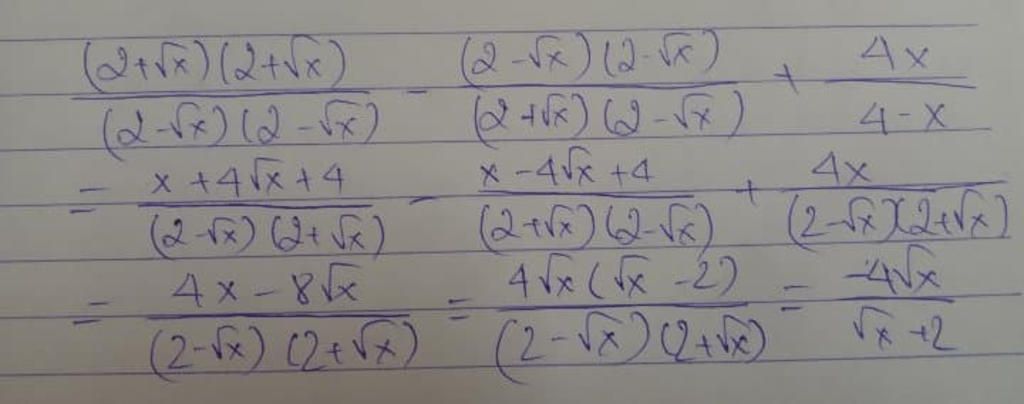 \frac{(2+\sqrt{x})(2+\sqrt{x})}{(2-\sqrt{x})(2-\sqrt{x})} - \frac{(2-\sqrt{x})(2-\sqrt{x})}{(2+\sqrt{x})(2-\sqrt{x})} + \frac{4x}{4-x}
= \frac{x+4\sqrt{x}+4}{(2-\sqrt{x})(2+\sqrt{x})} - \frac{x-4\sqrt{x}+4}{(2+\sqrt{x})(2-\sqrt{x})} + \frac{4x}{(2-\sqrt{x})(2+\sqrt{x})}
= \frac{4x-8\sqrt{x}}{(2-\sqrt{x})(2+\sqrt{x})} = \frac{4\sqrt{x}(\sqrt{x}-2)}{(2-\sqrt{x})(2+\sqrt{x})} = \frac{-4\sqrt{x}}{\sqrt{x}+2}